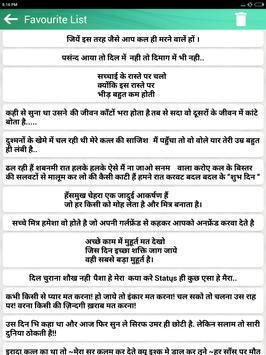 5:16 PM
Favourite List
जियें इस तरह जैसे आप कल ही मरने वालें हों ।
पसंन्द आया तो दिल में नही तो दिमाग में भी नही..
सच्चाई के रास्ते पर चलो
क्योंकि इस रास्ते पर
भीड़ बहुत कम होती
कही से सुना था उसने की जीवन काँटों भरा होता है तब से सदा वो दूसरों के जीवन में कांटे
बोता है.
दुश्मनों के खेमे में चल रही थी मेरे क़त्ल की साजिश मैं पहुँचा तो वो बोले यार तेरी उम्र बहुत
ही लंबी है..
ढल रही हैं शबनमी रात हलके हलके ऐसे में ना जाओ सनम वाला करोए कल के बिस्तर
की सलवटों से मालूम कर लो की कैसी काटी हैं हमने रात करवट बदल बदल के "शुभ दिन "
हँसमुख चेहरा एक जादुई आकर्षण हैं
जो हर किसी को मोह लेता है और मित्र बनाता है।
सच्चे मित्र हमेशा वो होते है जो अपनी गर्लफ्रेंड से कहकर आपको अनफ्रेंड करवा देते है
अच्छे काम में मुहूर्त मत देखो
जिस दिन इच्छा शक्ति जाग जाये
वही सबसे बड़ा मुहूर्त है।
दिल चुराना शौख नही पैशा हे मेरा क्या करे Status ही कुछ एसा हे मेरा..
कभी किसी से प्यार मत करना! हो जाये तो इंकार मत करना! चल सको तो चलना उस राह
पर! वरना किसी की ज़िन्दगी ख़राब मत करना!
उस दिन भि कहा था और आज फिर सुन ले सिरफ उमर ही छोटी है. लेकिन सलाम तो सारी
दुनिया ठोकती है!!
इरादा कत्ल का था ~मेरा सर कलम कर देते क्यू इश्क मे डाल कर तुने ~हर साँस पर मौत